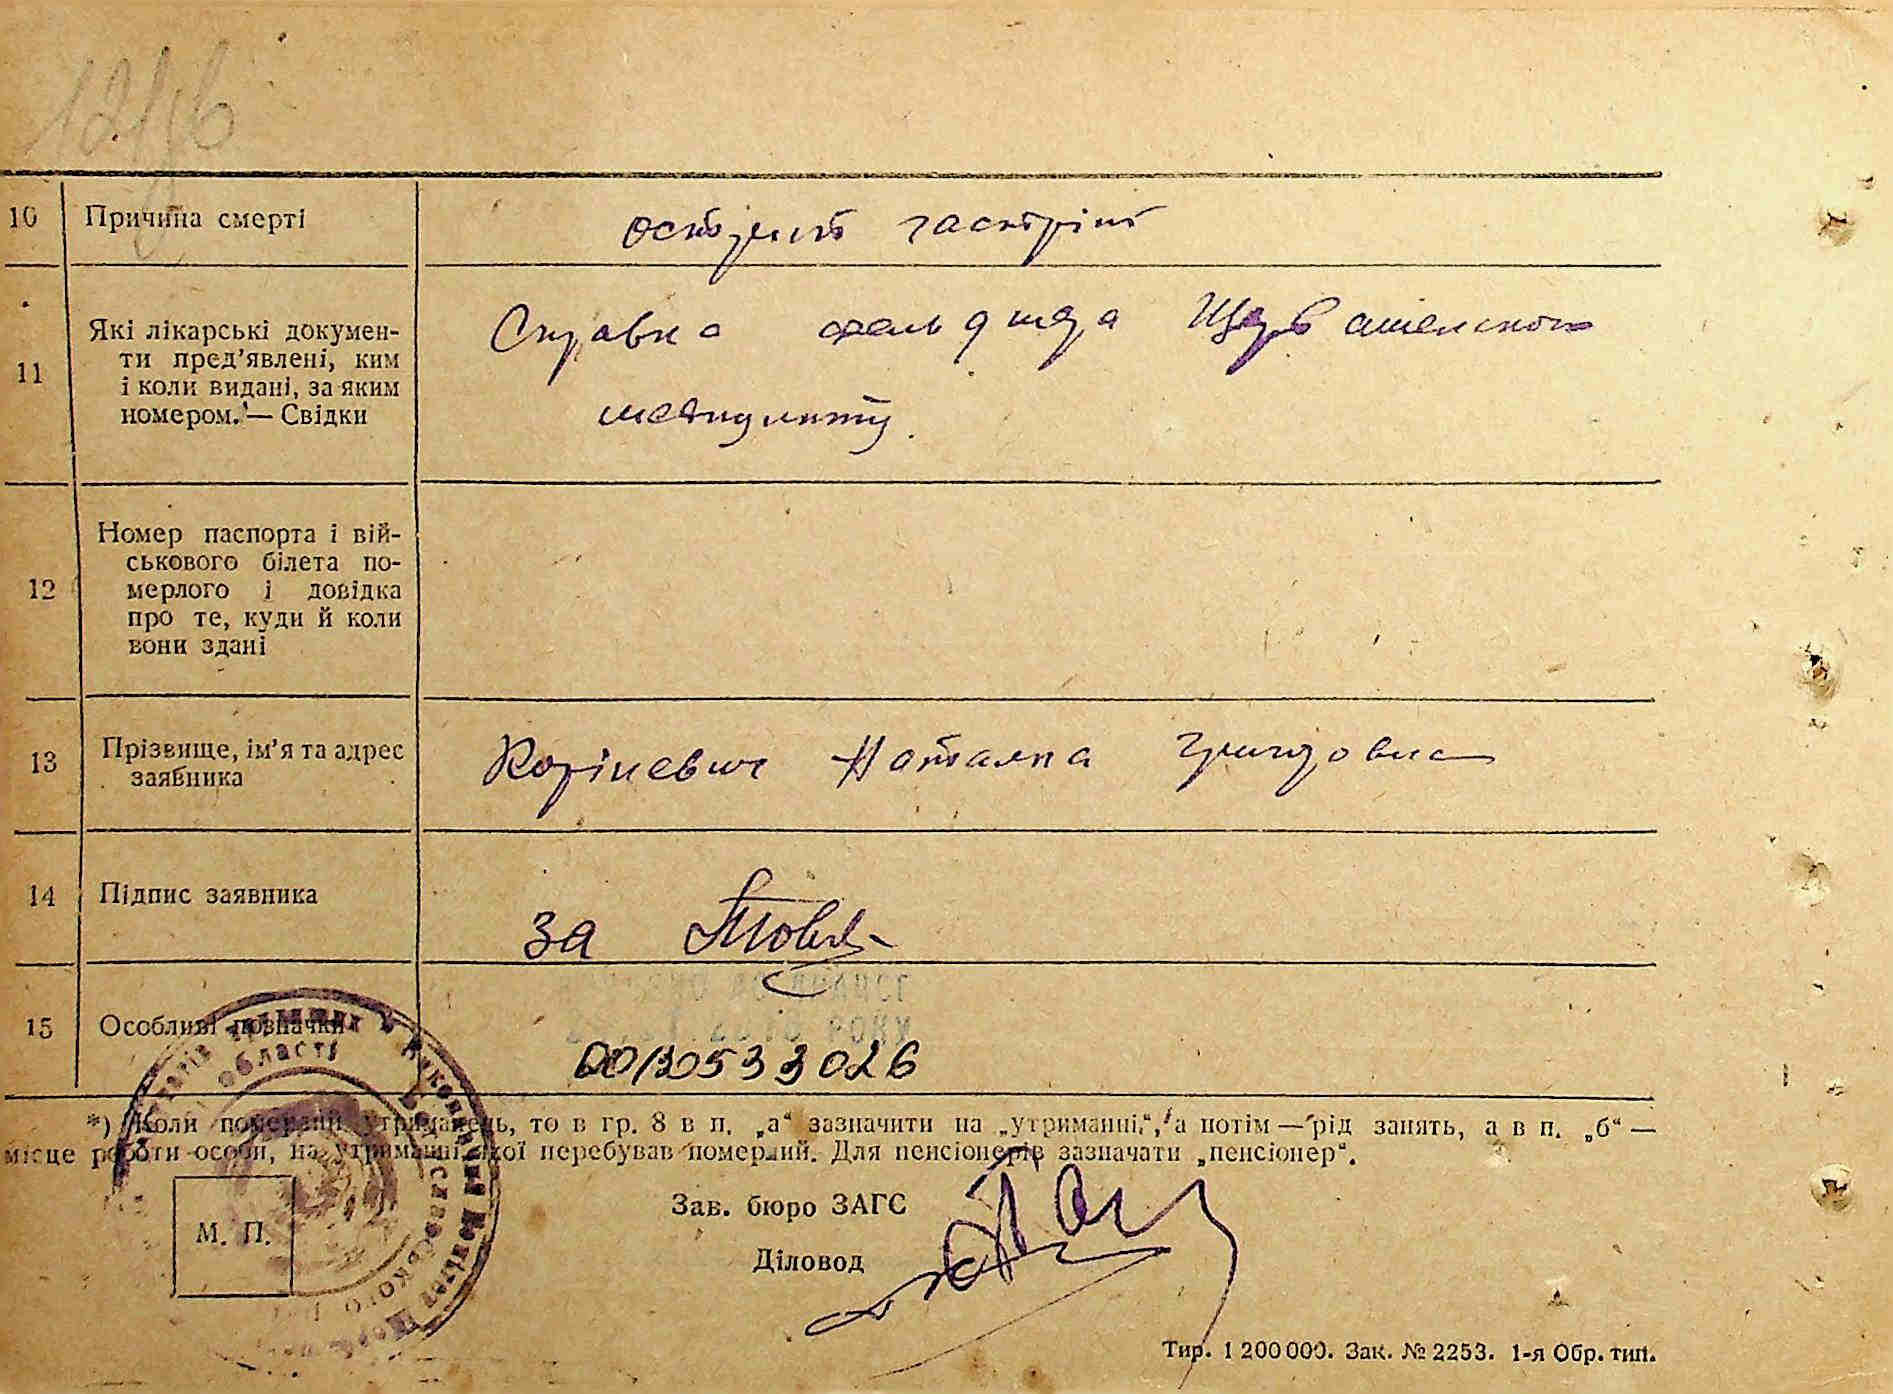 10 Причина смерті
острий гастріт
11 Які лікарські докумен-
ти пред'явлені, ким
і коли видані, за яким
номером.— Свідки
Справка фельдшера Щербашенского
медпункту.
12 Номер паспорта і вій-
ськового білета по-
мерлого і довідка
про те, куди й коли
вони здані
13 Прізвище, ім'я та адрес
заявника
Коріневич Наталка Григоровна
14 Підпис заявника
за
15 Особливі позначки
0010533026
*) Коли померлий утриманець, то в гр. 8 в п. „а“ зазначити на „утриманні“, а потім — рід занять, а в п. „б“ —
місце роботи особи, на утриманні якої перебував померлий. Для пенсіонерів зазначати „пенсіонер“.
Зав. бюро ЗАГС
М. П.
Діловод
області
Тир. 1 200 000. Зак. № 2253. 1-я Обр. тип.